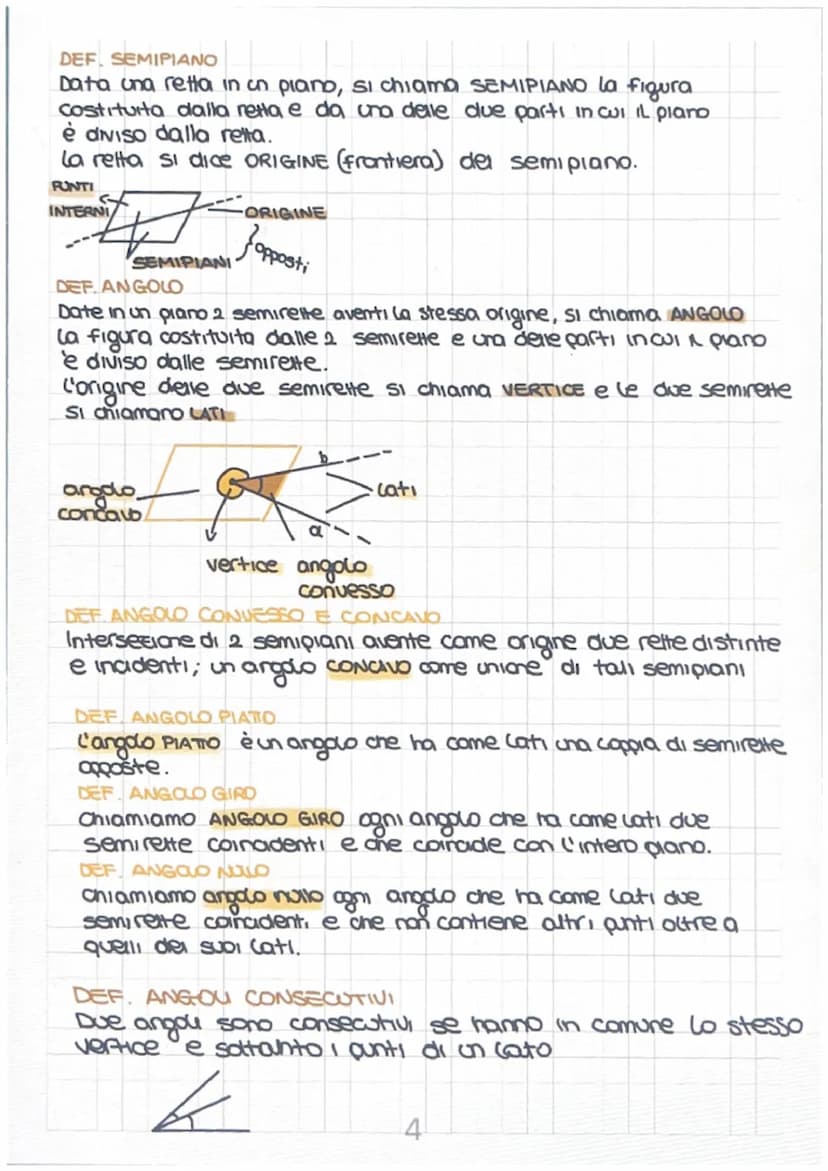 DEF. SEMIPIANO
Data una retta in un piano, si chiama SEMIPIANO la figura
costituita dalla retta e da una delle due parti in cui il piano
è diviso dalla retta.
La retta si dice ORIGINE (frontiera) del semipiano.
PUNTI
INTERNI
ORIGINE
SEMIPIANI
opposti
DEF. ANGOLO
Date in un piano 2 semirette aventi la stessa origine, si chiama ANGOLO
la figura costituita dalle 2 semirette e una delle parti in cui il piano
è diviso dalle semirette.
L'origine delle due semirette si chiama VERTICE e le due semirette
si chiamano LATI
b
angolo
concavo
lati
a
vertice angolo
convesso
DEF. ANGOLO CONVESSO E CONCAVO
Intersezione di 2 semipiani avente come origine due rette distinte
e incidenti; un angolo CONCAVO come unione di tali semipiani
DEF. ANGOLO PIATTO
L'angolo PIATTO è un angolo che ha come lati una coppia di semirette
opposte.
DEF. ANGOLO GIRO
Chiamiamo ANGOLO GIRO ogni angolo che ha come lati due
semirette coincidenti e che coincide con l'intero piano.
DEF. ANGOLO NULLO
Chiamiamo angolo nullo ogni angolo che ha come lati due
semirette coincidenti e che non contiene altri punti oltre a
quelli dei suoi lati.
DEF. ANGOLI CONSECUTIVI
Due angoli sono consecutivi se hanno in comune lo stesso
vertice e soltanto i punti di un lato
4